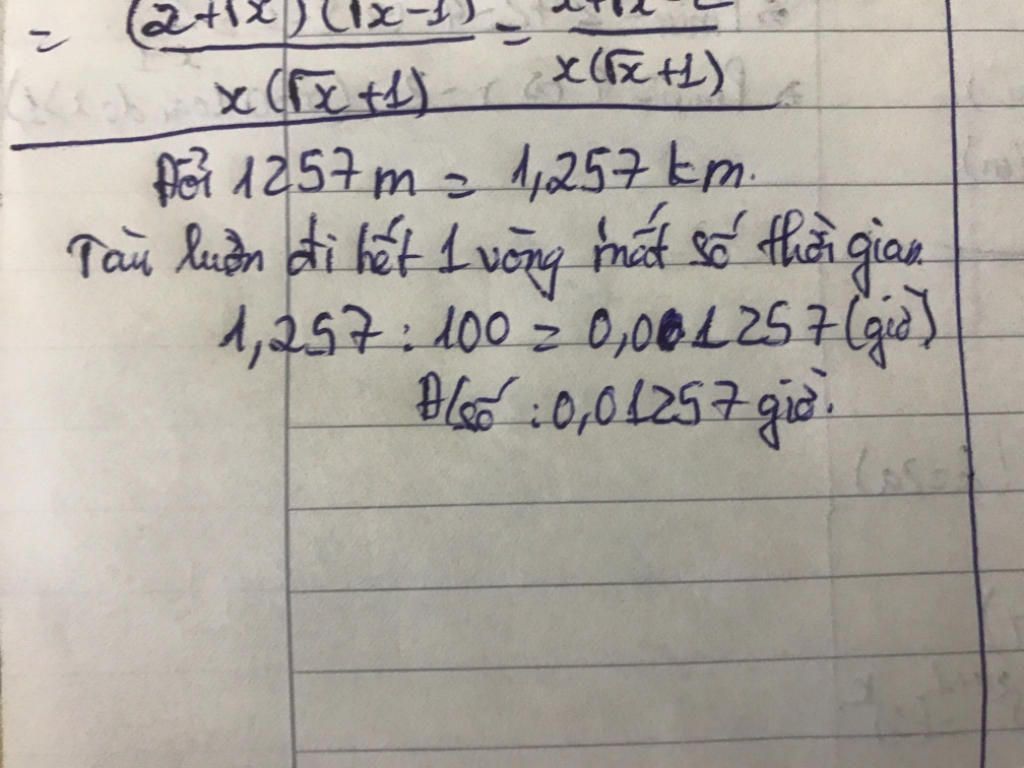 = (2+√x)(√x-1) / x(√x+1) = x+√x-2 / x(√x+1)
Đổi 1257 m = 1,257 km.
Tàu lượn đi hết 1 vòng mất số thời gian
1,257 : 100 = 0,001257 (giờ)
Đ/số : 0,01257 giờ.